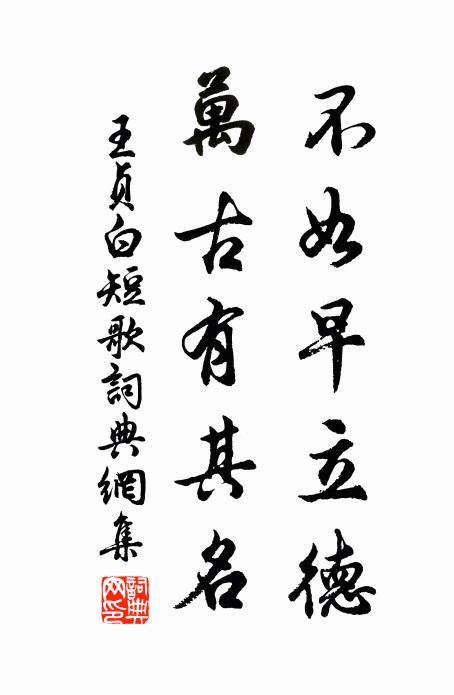 不如早立德
萬古有其名
王貞白短歌詞典網集
詞典網印